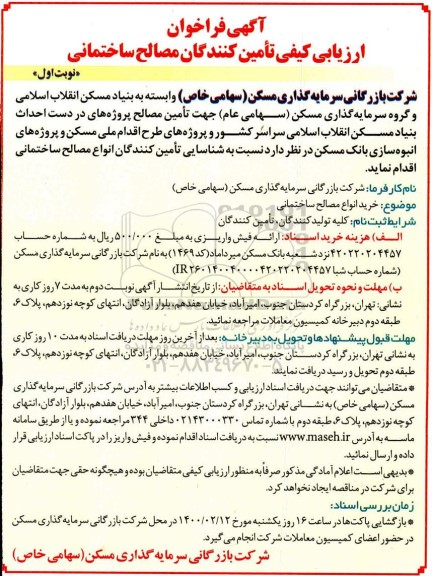 آگهی فراخوان
ارزیابی کیفی تأمین کنندگان مصالح ساختمانی
«نوبت اول»
شرکت بازرگانی سرمایه گذاری مسکن (سهامی خاص) وابسته به بنیاد مسکن انقلاب اسلامی
و گروه سرمایه گذاری مسکن (سهامی عام) جهت تأمین مصالح پروژه‌های در دست احداث
بنیاد مسکن انقلاب اسلامی سراسر کشور و پروژه‌های طرح اقدام ملی مسکن و پروژه‌های
انبوه‌سازی بانک مسکن در نظر دارد نسبت به شناسایی تأمین کنندگان انواع مصالح ساختمانی
اقدام نماید.
نام کارفرما: شرکت بازرگانی سرمایه گذاری مسکن (سهامی خاص)
موضوع: خرید انواع مصالح ساختمانی
شرایط ثبت نام: کلیه تولیدکنندگان، تأمین کنندگان
الف) هزینه خرید اسناد: ارائه فیش واریزی به مبلغ ۵۰۰/۰۰۰ ریال به شماره حساب
۴۲۰۲۲۰۲۰۴۴۵۷ نزد شعبه بانک مسکن میرداماد (کد ۱۴۶۹) به نام شرکت بازرگانی سرمایه گذاری مسکن
ب) مهلت و نحوه تحویل اسناد به متقاضیان: از تاریخ انتشار آگهی نوبت دوم به مدت ۷ روز کاری به
نشانی: تهران، بزرگراه کردستان جنوب، امیرآباد، خیابان هفدهم، بلوار آزادگان، انتهای کوچه نوزدهم، پلاک ۶،
طبقه دوم دبیرخانه کمیسیون معاملات مراجعه نمائید.
مهلت قبول پیشنهادها و تحویل به دبیرخانه: بعد از آخرین روز مهلت دریافت اسناد به مدت ۱۰ روز کاری
به نشانی تهران، بزرگراه کردستان جنوب، امیرآباد، خیابان هفدهم، بلوار آزادگان، انتهای کوچه نوزدهم، پلاک ۶،
طبقه دوم تحویل و رسید دریافت نمایند.
* متقاضیان می‌توانند جهت دریافت اسناد ارزیابی و کسب اطلاعات بیشتر به آدرس شرکت بازرگانی سرمایه گذاری
مسکن (سهامی خاص) به نشانی تهران، بزرگراه کردستان جنوب، امیرآباد، خیابان هفدهم، بلوار آزادگان، انتهای
کوچه نوزدهم، پلاک ۶، طبقه دوم با شماره تماس ۰۲۱۴۳۰۰۰۳۳۰ داخلی ۳۴۴ مراجعه نموده و یا از طریق سامانه
ماسه به آدرس www.maseh.ir نسبت به دریافت اسناد اقدام نموده و فیش واریز را در پاکت اسناد ارزیابی قرار
داده و ارسال نمائید.
* بدیهی است اعلام آمادگی مذکور صرفاً به منظور ارزیابی کیفی متقاضیان بوده و هیچگونه حقی جهت متقاضیان
برای شرکت در مناقصه ایجاد نخواهد کرد.
زمان بررسی اسناد:
* بازگشایی پاکت‌ها در ساعت ۱۶ روز یکشنبه مورخ ۱۴۰۰/۰۲/۱۲ در محل شرکت بازرگانی سرمایه گذاری مسکن
در حضور اعضای کمیسیون معاملات شرکت انجام می‌گردد.
شرکت بازرگانی سرمایه گذاری مسکن (سهامی خاص)